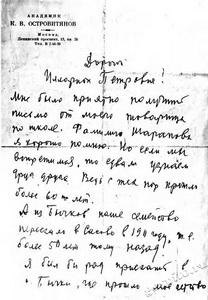 АКАДЕМИК
К. В. ОСТРОВИТЯНОВ
Москва,
Ленинский проспект, 13, кв.
Тел. В
Дорогой
Петрович!
Мне было приятно получить
письмо от моего товарища
по школе. Фамилию Шарапова
я хорошо помню. Но если мы
встретимся, то едва ли узнаем
друг друга. Ведь с тех пор прошло
более 60 лет.
А из Бычков наше семейство
переехало в в 1911 году, т. е.
более 50 лет тому назад.
Я был бы рад приехать в
Бычки, где прошло мое детство